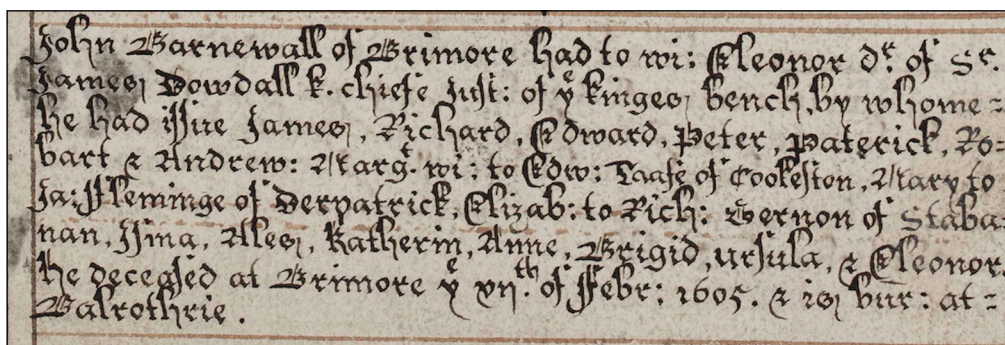 John Barnewall of Brimore had to wi: Eleonor dr. of Sr.
James Dowdall k. chiefe Just: of ye kinges bench, by whome =
he had issue James, Richard, Edward, Peter, Paterick, Ro=
bart & Andrew: Margt. wi: to Edw: Taafe of Cookeston, Mary to
Ja: Fleminge of Derpatrick, Elizab: to Rich: Gernon of Staba:
nan, Jsma, Ales, Katherin, Anne, Brigid, ursula, & Eleonor
he deceased at Brimore ye xvii.th of Febr: 1605. & is bur: at =
Balrothrie.